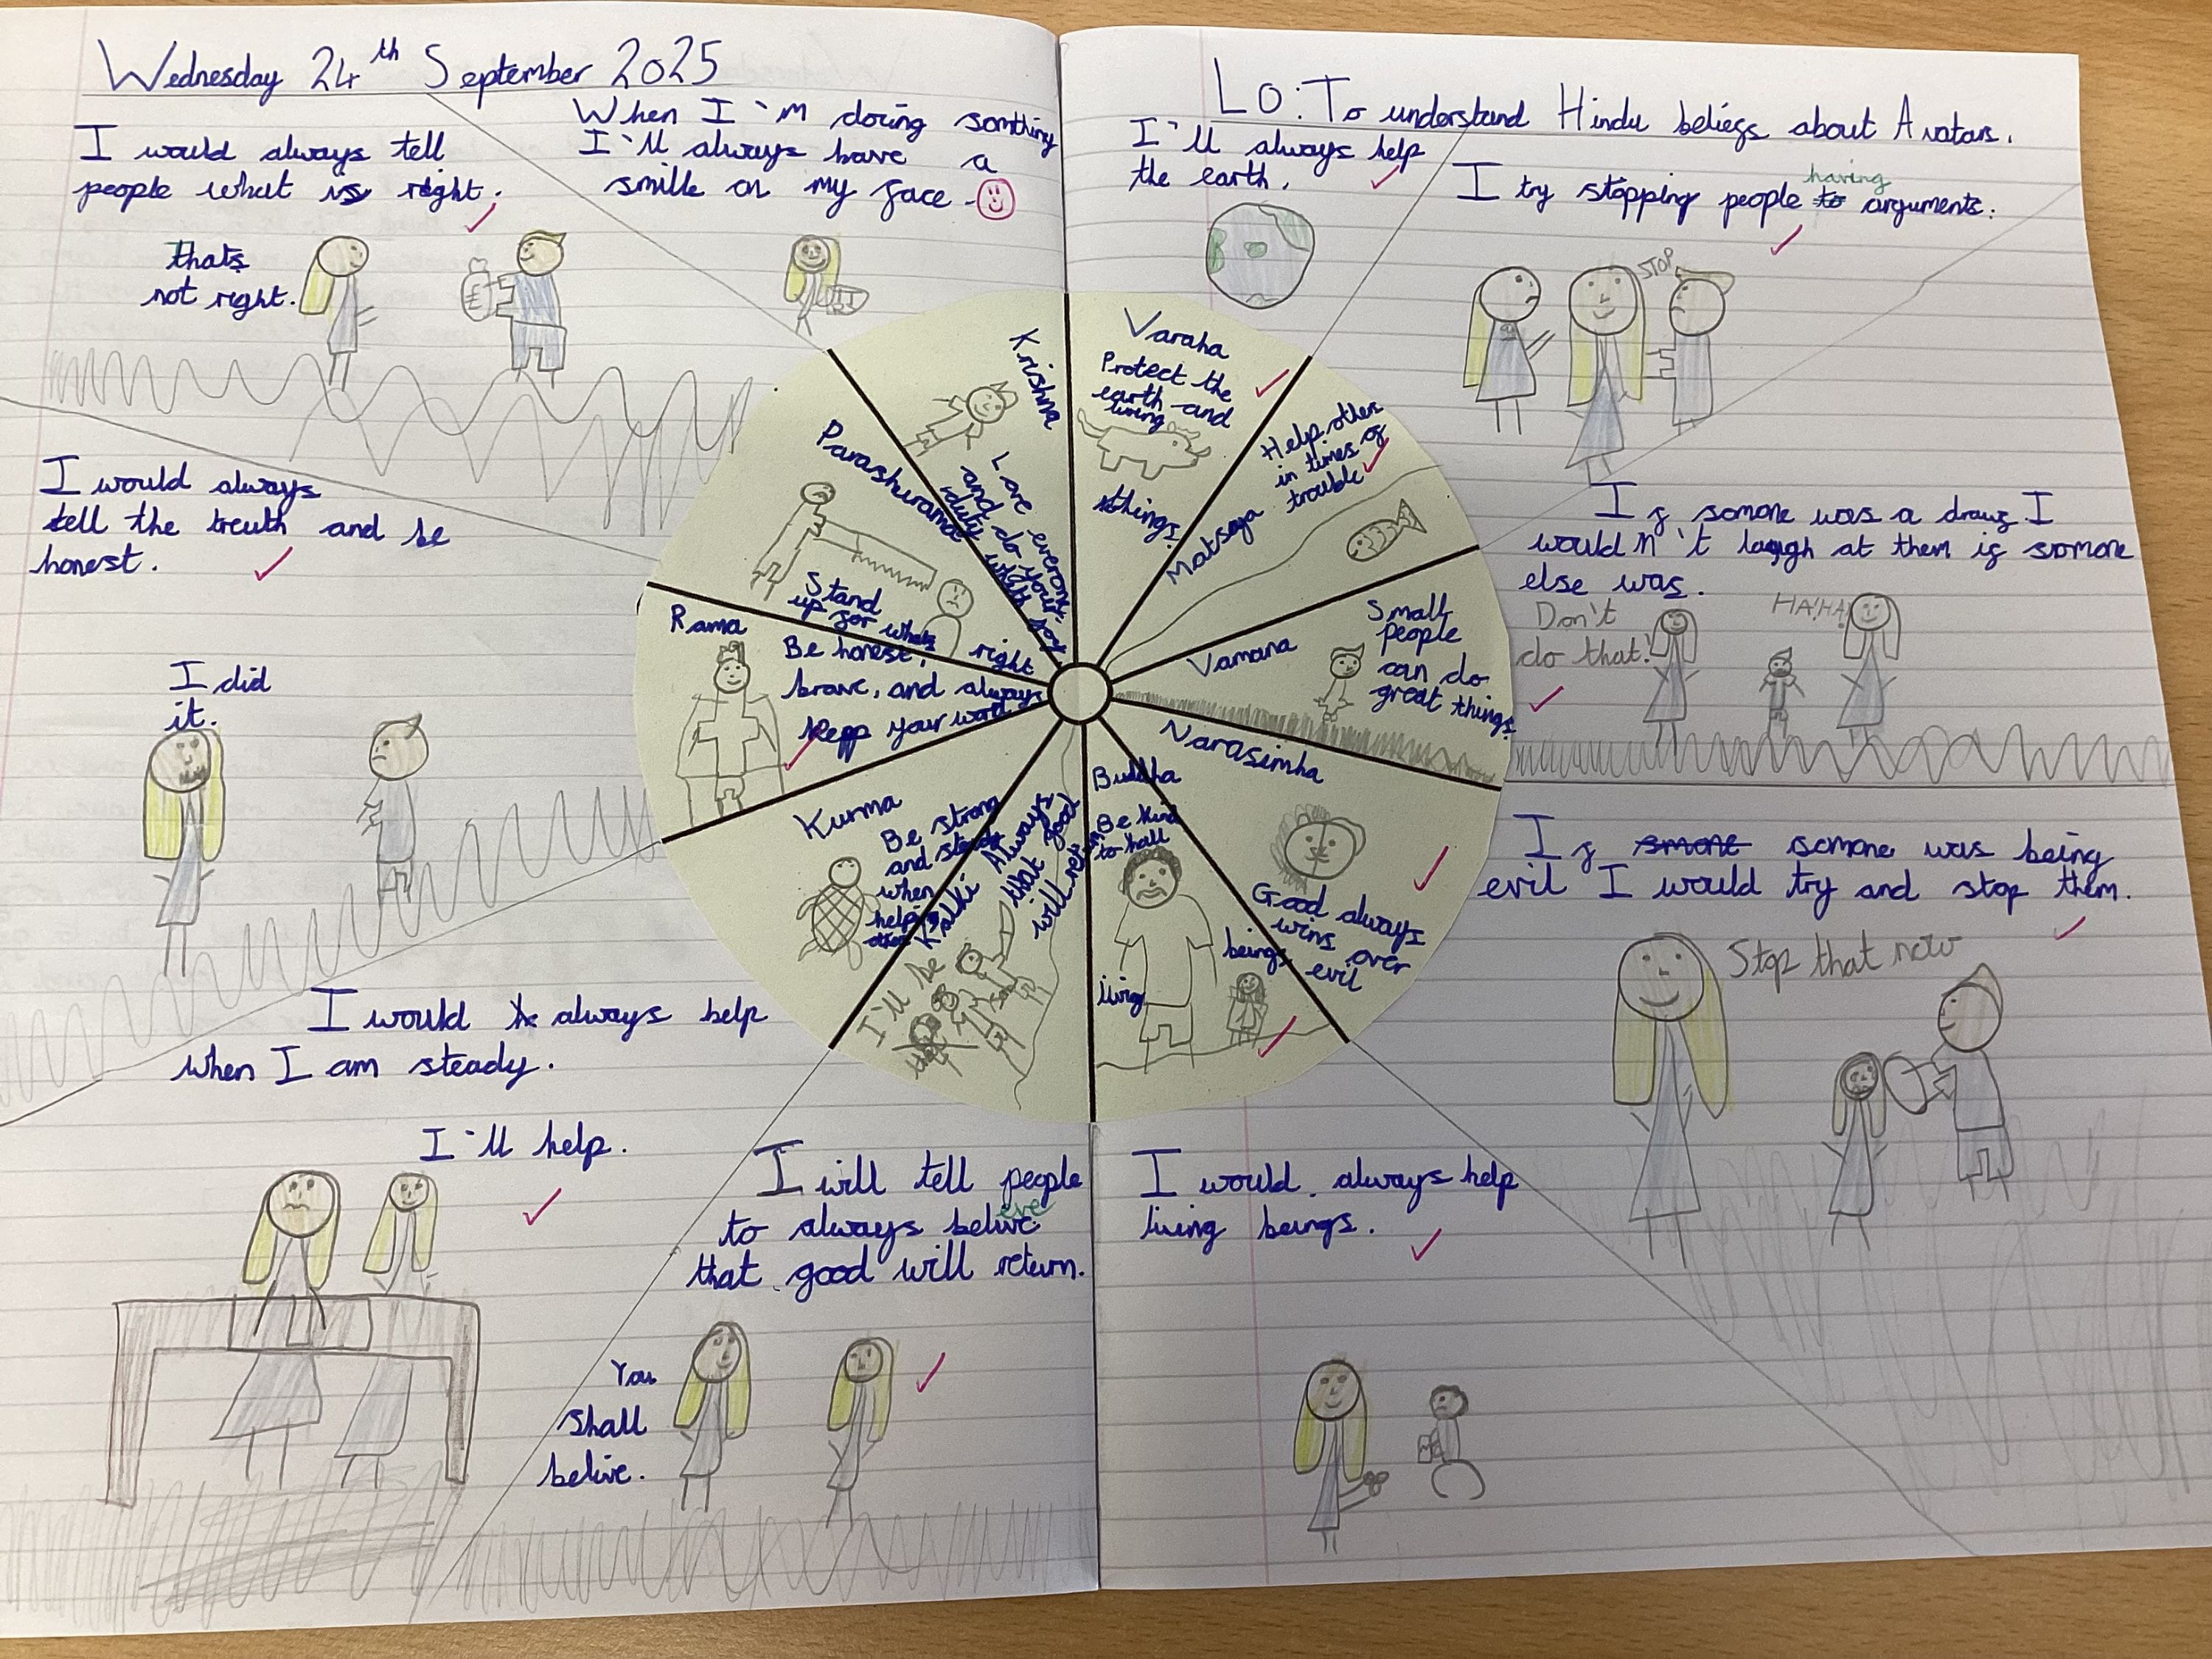 Wednesday 24th September 2025
I would always tell
people what is right.
thats
not right.
When I'm doing somthing
I'll always have a
smile on my face.
LO: To understand Hindu beliefs about Avatars.
I'll always help
the earth.
I try stopping people to having arguments.
STOP
If somone was a drawf I
wouldn't laugh at them if somone
else was.
Don't
do that!
HA!HA!
If smone somone was being
evil I would try and stop them.
Stop that now
I would always help
living beings.
I will tell people
to always belive eve
that good will return.
You
shall
belive.
I would always help
when I am steady.
I'll help.
I would always
tell the treuth and be
honest.
I did
it.
Varaha
Protect the
earth and
living
things.
Matsaya
Help other
in times of
trouble
Vamana
Small
people
can do
great things.
Narasimha
Good always
wins over
evil
Buddha
Be kind
to hall
living
beings
Kalki
Always
that good
will
I'll be
Kurma
Be strong
and steady
when
help
Rama
Be honest,
brave, and always
kepp your word
Parashurama
Stand
up for whats
right
Krishna
Love everone
and do your
duty with joy